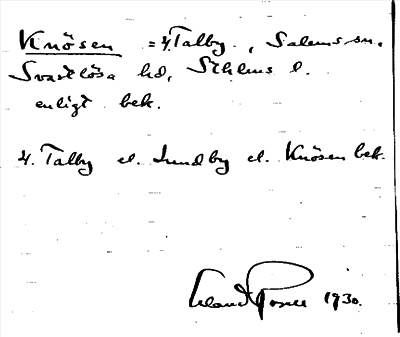 Knösen = 4 Talby, Salems sn.
Svartlösa hd, Sthlms l.
enligt bek.
4. Talby el. Lundby el. Knösen bek.
1930.